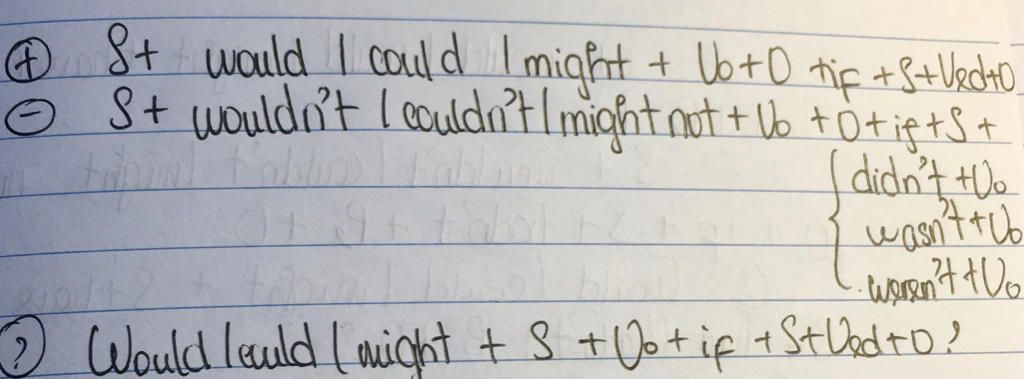 (+) S+ would / could / might + V0 + O + if + S + V2ed + O
(-) S+ wouldn't / couldn't / might not + V0 + O + if + S +
{ didn't + V0
wasn't + V0
weren't + V0
(?) Would / could / might + S + V0 + if + S + V2ed + O?